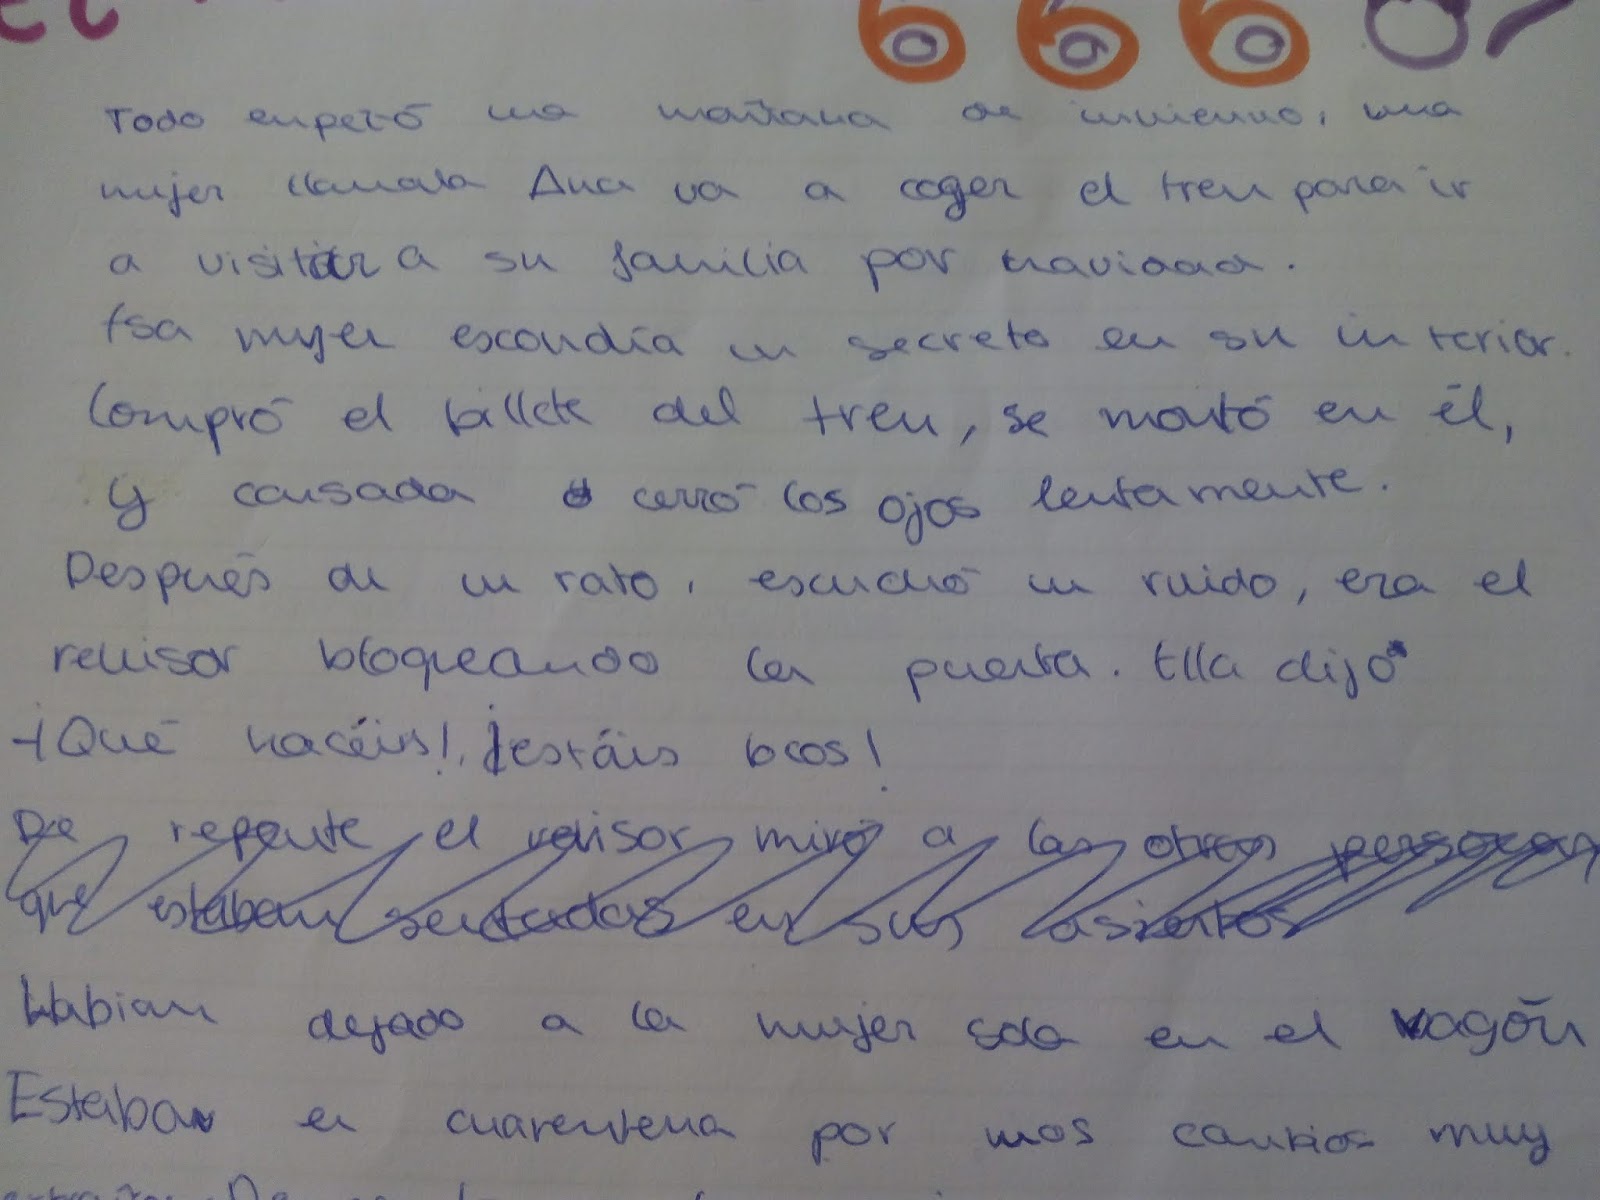 666
Todo empezó una mañana de invierno, una
mujer llamada Ana va a coger el tren para ir
a visitar a su familia por navidad.
Esa mujer escondía un secreto en su interior.
Compró el billete del tren, se montó en él,
y cansada cerró los ojos lentamente.
Después de un rato, escuchó un ruido, era el
revisor bloqueando la puerta. Ella dijo
-¡Qué hacéis!, ¡estáis locos!
De repente el revisor miró a las otras personas
que estaban sentadas en sus asientos
Habian dejado a la mujer sola en el vagón
Estaban en cuarentena por unos cambios muy